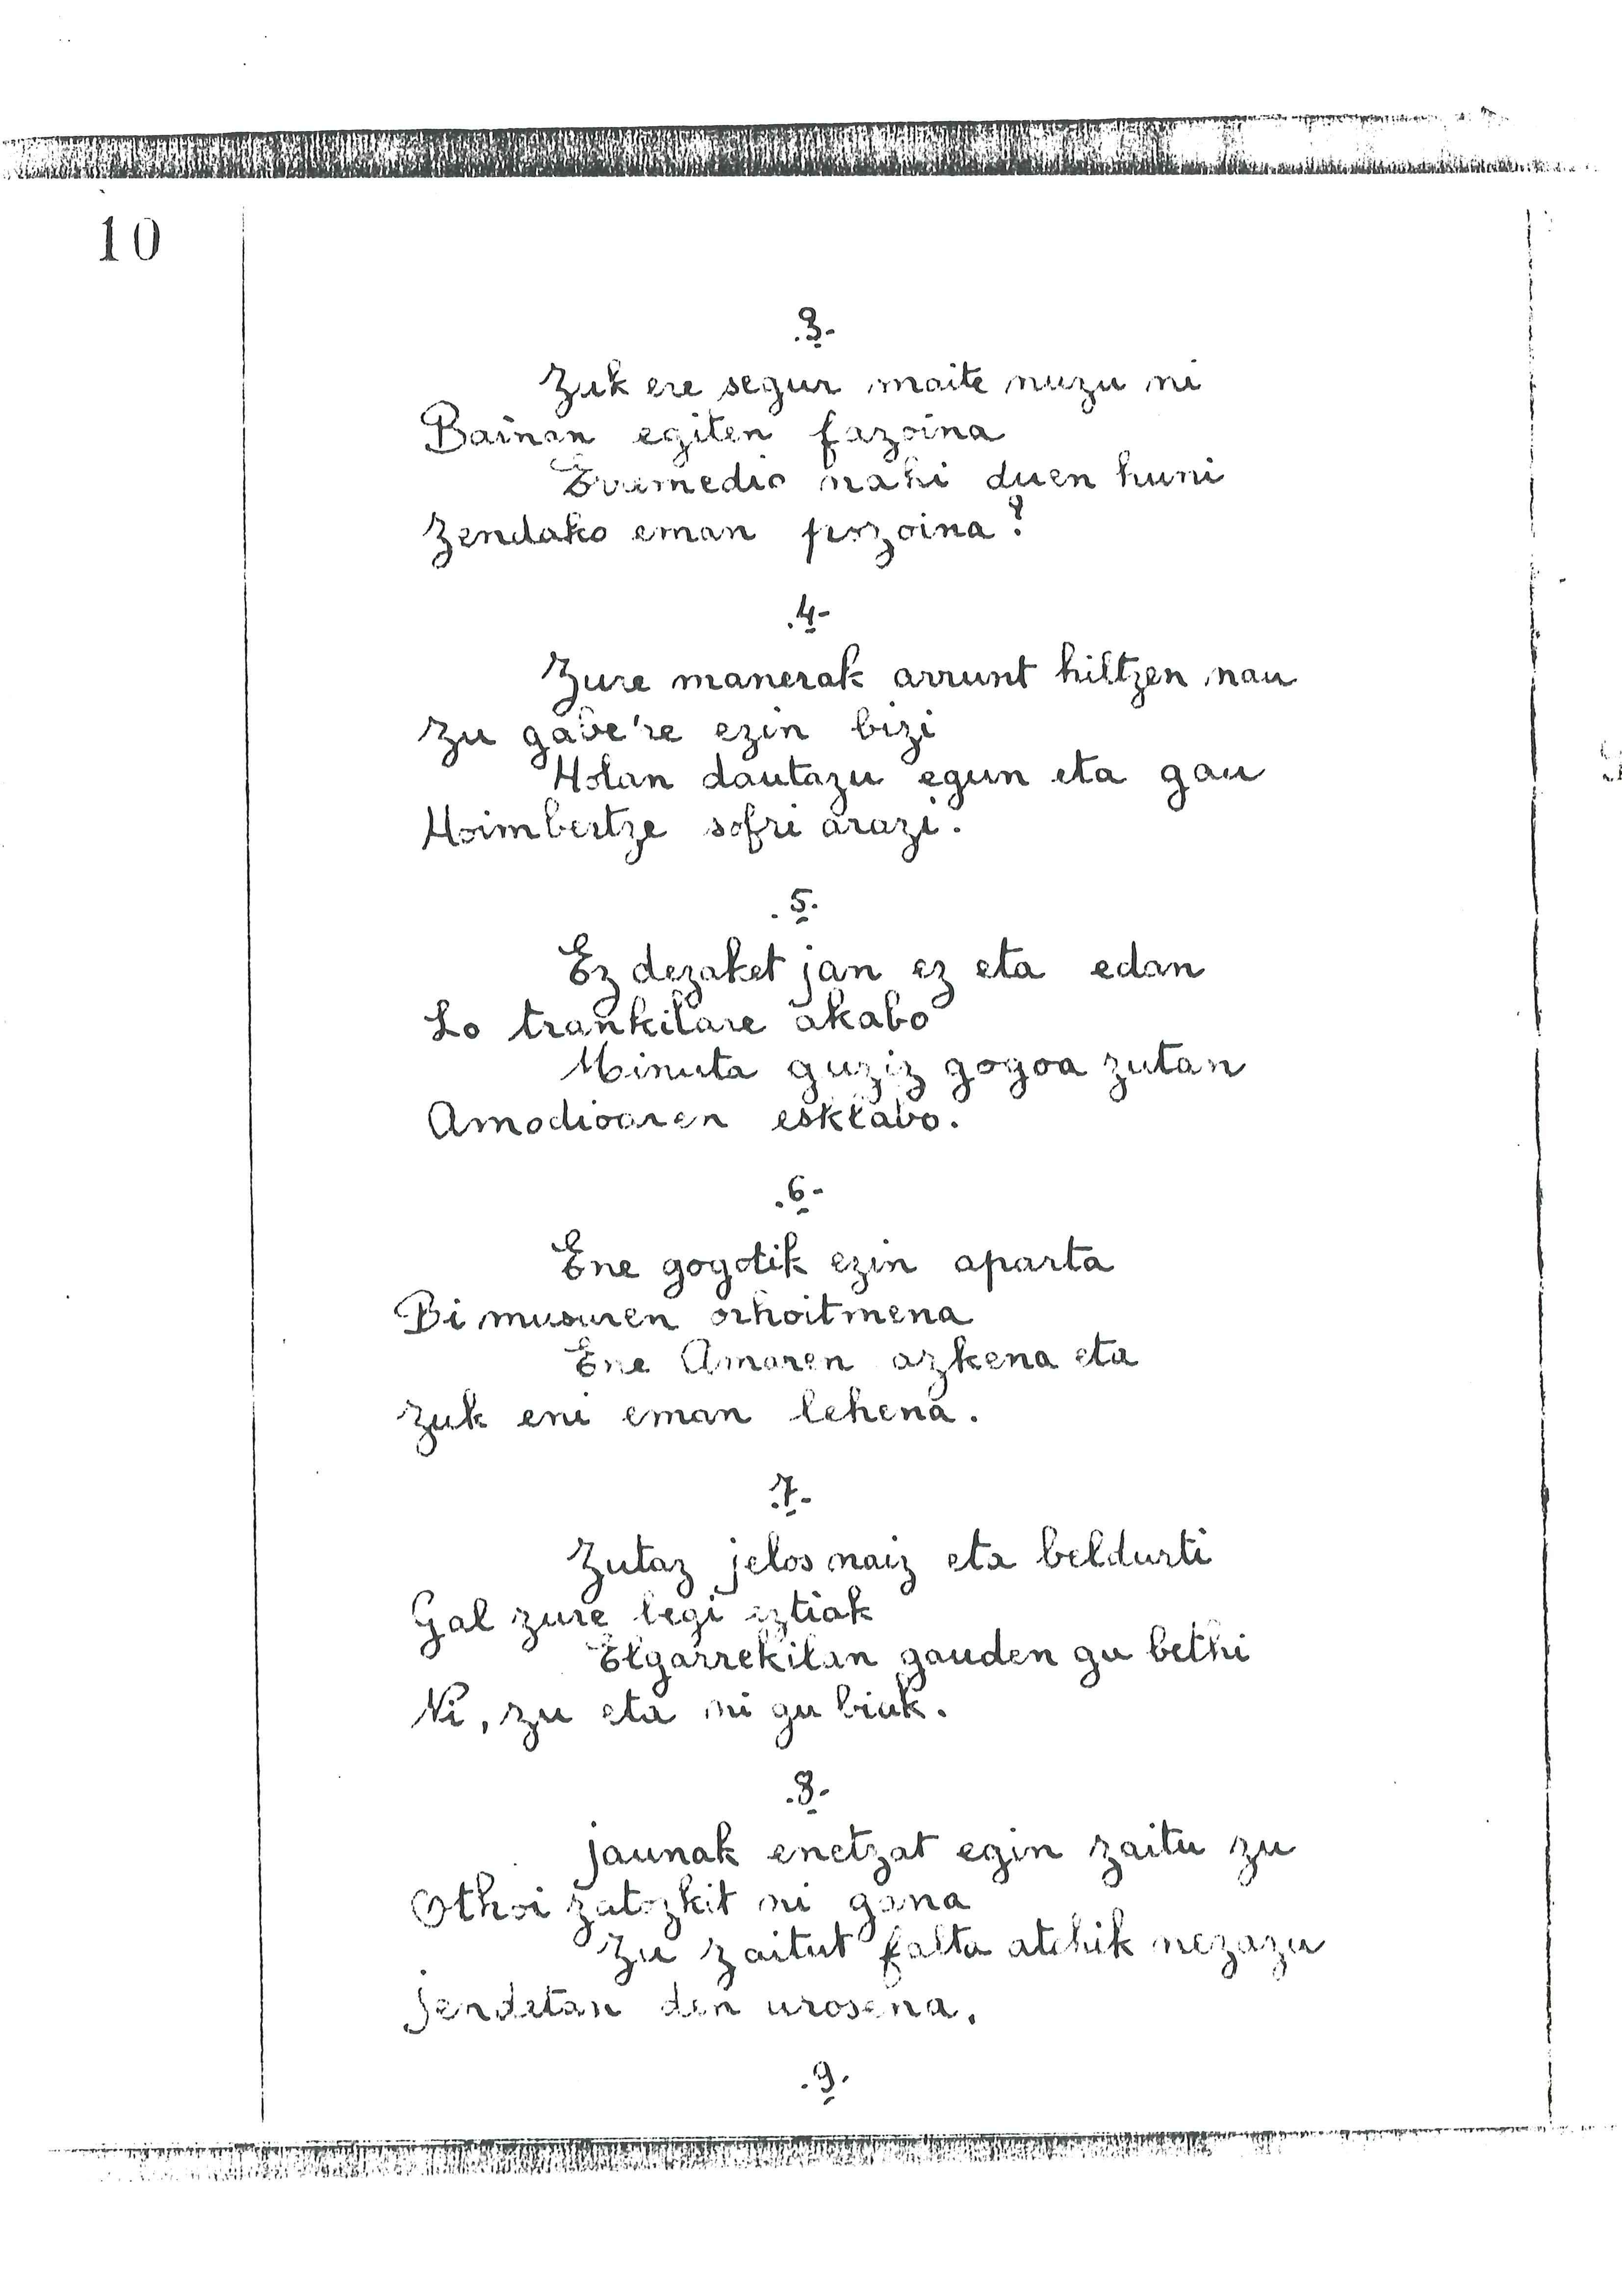 10
.3.-
Zuk ere segur maite nuzu ni
Bainan egiten fazoina
Erremedio nahi duen huni
Zendako eman pozoina?
.4-
Zure manerak arrunt hiltzen nau
Zu gabe're ezin bizi
Holan dautazu egun eta gau
Hoimbertze sofri arazi.
.5.
Ez dezaket jan ez eta edan
Lo trankilare akabo
Minuta guziz gogoa zutan
Amodioaren esklabo.
.6-
Ene gogotik ezin aparta
Bi musuren orhoitmena
Ene Amaren azkena eta
Zuk eni eman lehena.
.7-
Zutaz jelos naiz eta beldurti
Gal zure begi eztiak
Elgarrekilan gauden gu bethi
Ni, zu eta ni gu biak.
.8-
Jaunak enetzat egin zaitu zu
Othoi zatozkit ni gana
Zu zaitut falta atchik nezazu
Jendetan den urosena.
.9.